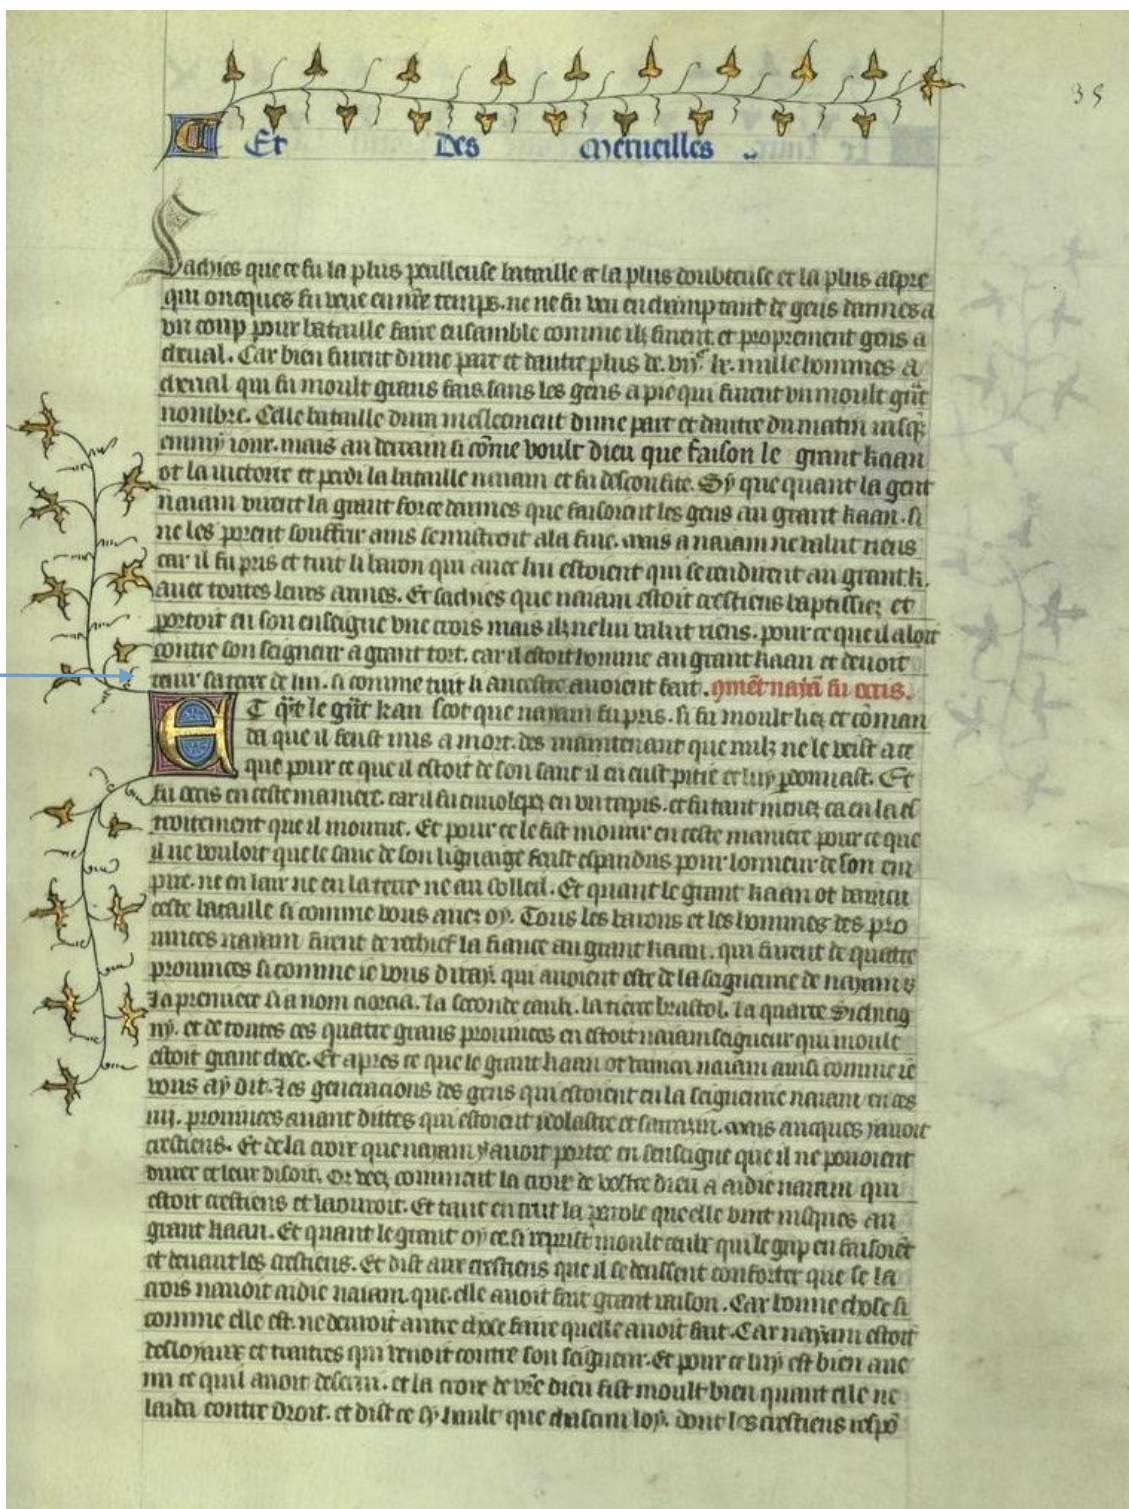 35
Et Des Merueilles
Sachies que ce fu la plus perilleuse bataille et la plus doubteuse et la plus aspre
qui oncques fu veue en nr̃e temps. ne ne fu veu en champ tant de gens darmes a
vn coup pour bataille faire ensamble comme ilz furent. et proprement gens a
cheual. Car bien furent dune part et dautre plus de. mille hommes a
cheual qui fu moult grans fais. sans les gens a pie qui furent vn moult gñt
nombre. Celle bataille dura mellecment dune part et dautre du matin iusq̃
enmy iour. mais au derrain si cõme voult dieu que faison le grant kaan
ot la victoire et perdi la bataille naiam et fu desconfite. Sy que quant la gent
naiam virent la grant force darmes que faisoient les gens au grant kaan. si
ne les porent souffrir ains se mistrent a la fuie. mais a naiam ne valut riens
car il fu pris et tuit li baron qui auec lui estoient qui se rendirent au grant k.
auec toutes leurs armes. Et sachies que naiam estoit crestiens baptissiez et
portoit en son enseigne vne crois mais ilz ne lui valut riens. pour ce que il aloit
contre son seigneur a grant tort. car il estoit homme au grant kaan et deuoit
tenir sa terre de lui. si comme tuit li ancestre auoient fait. 9mẽt najã fu occis.
ET q̃t le gñt kan scot que naiam fu pris. si fu moult liez et cõman
da que il feust mis a mort. des maintenant que nulz ne le veist a ce
que pour ce que il estoit de son sanc il en eust pitie et luy pardonnast. Et
fu occis en ceste maniere. car il fu enuolepez en vn tapis. et fu tant menez ca en la es
troitement que il mourut. Et pour ce le fist mourir en ceste maniere pour ce que
il ne vouloit que le sanc de son lignaige feust espandus pour lonneur de son em
pire. ne en lair ne en la terre ne au solleil. Et quant le grant kaan ot vaincu
ceste bataille si comme vous auez oy. Tous les barons et les hommes des pro
uinces naiam firent de rechief la fiance au grant kaan. qui furent de quatre
prouinces si comme ie vous diray. qui auoient este de la seigneurie de nayam
la premiere si a nom ciorcia. la seconde cauli. la tierce brastol. la quarte Sichntig
ny. et de toutes ces quatre grans prouinces en estoit naiam seigneur qui moult
estoit grant chose. Et apres ce que le grant kaan ot vaincu naiam ainsi comme ie
vous ay dit. Les generacions des gens qui estoient en la seigneurie naiam en ces
iiij. prouinces auant dittes qui estoient ydolastre et sarrazin. mais aucques y auoit
crestiens. Et de la croix que nayam y auoit portee en senseigne que il ne pouoient
durer et leur disoit. Or veez comment la croix de vostre dieu a aidie naiam qui
estoit crestiens et laouroit. Et tant en crut la parole que elle vint iusques au
grant kaan. Et quant le grant oy ce. si reprist moult ceulx qui le gap en faisoiẽt
et deuant les crestiens. Et dist aux crestiens que il se deussent conforter que se la
crois nauoit aidie naiam. que. elle auoit fait grant raison. Car bonne chose si
comme elle est. ne deuroit autre chose faire quelle auoit fait. Car nayam estoit
desloyaux et traitres qui venoit contre son seigneur. Et pour ce luy est bien aue
nu ce quil auoit deserui. et la croix de vr̃e dieu fist moult bien quant elle ne
laida contre droit. et dist ce sy hault que chascun loy. dont les crestiens respõ